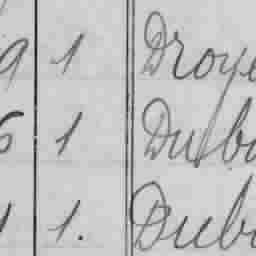 9 1 Droye
6 1 Dubo
1 1. Dubo